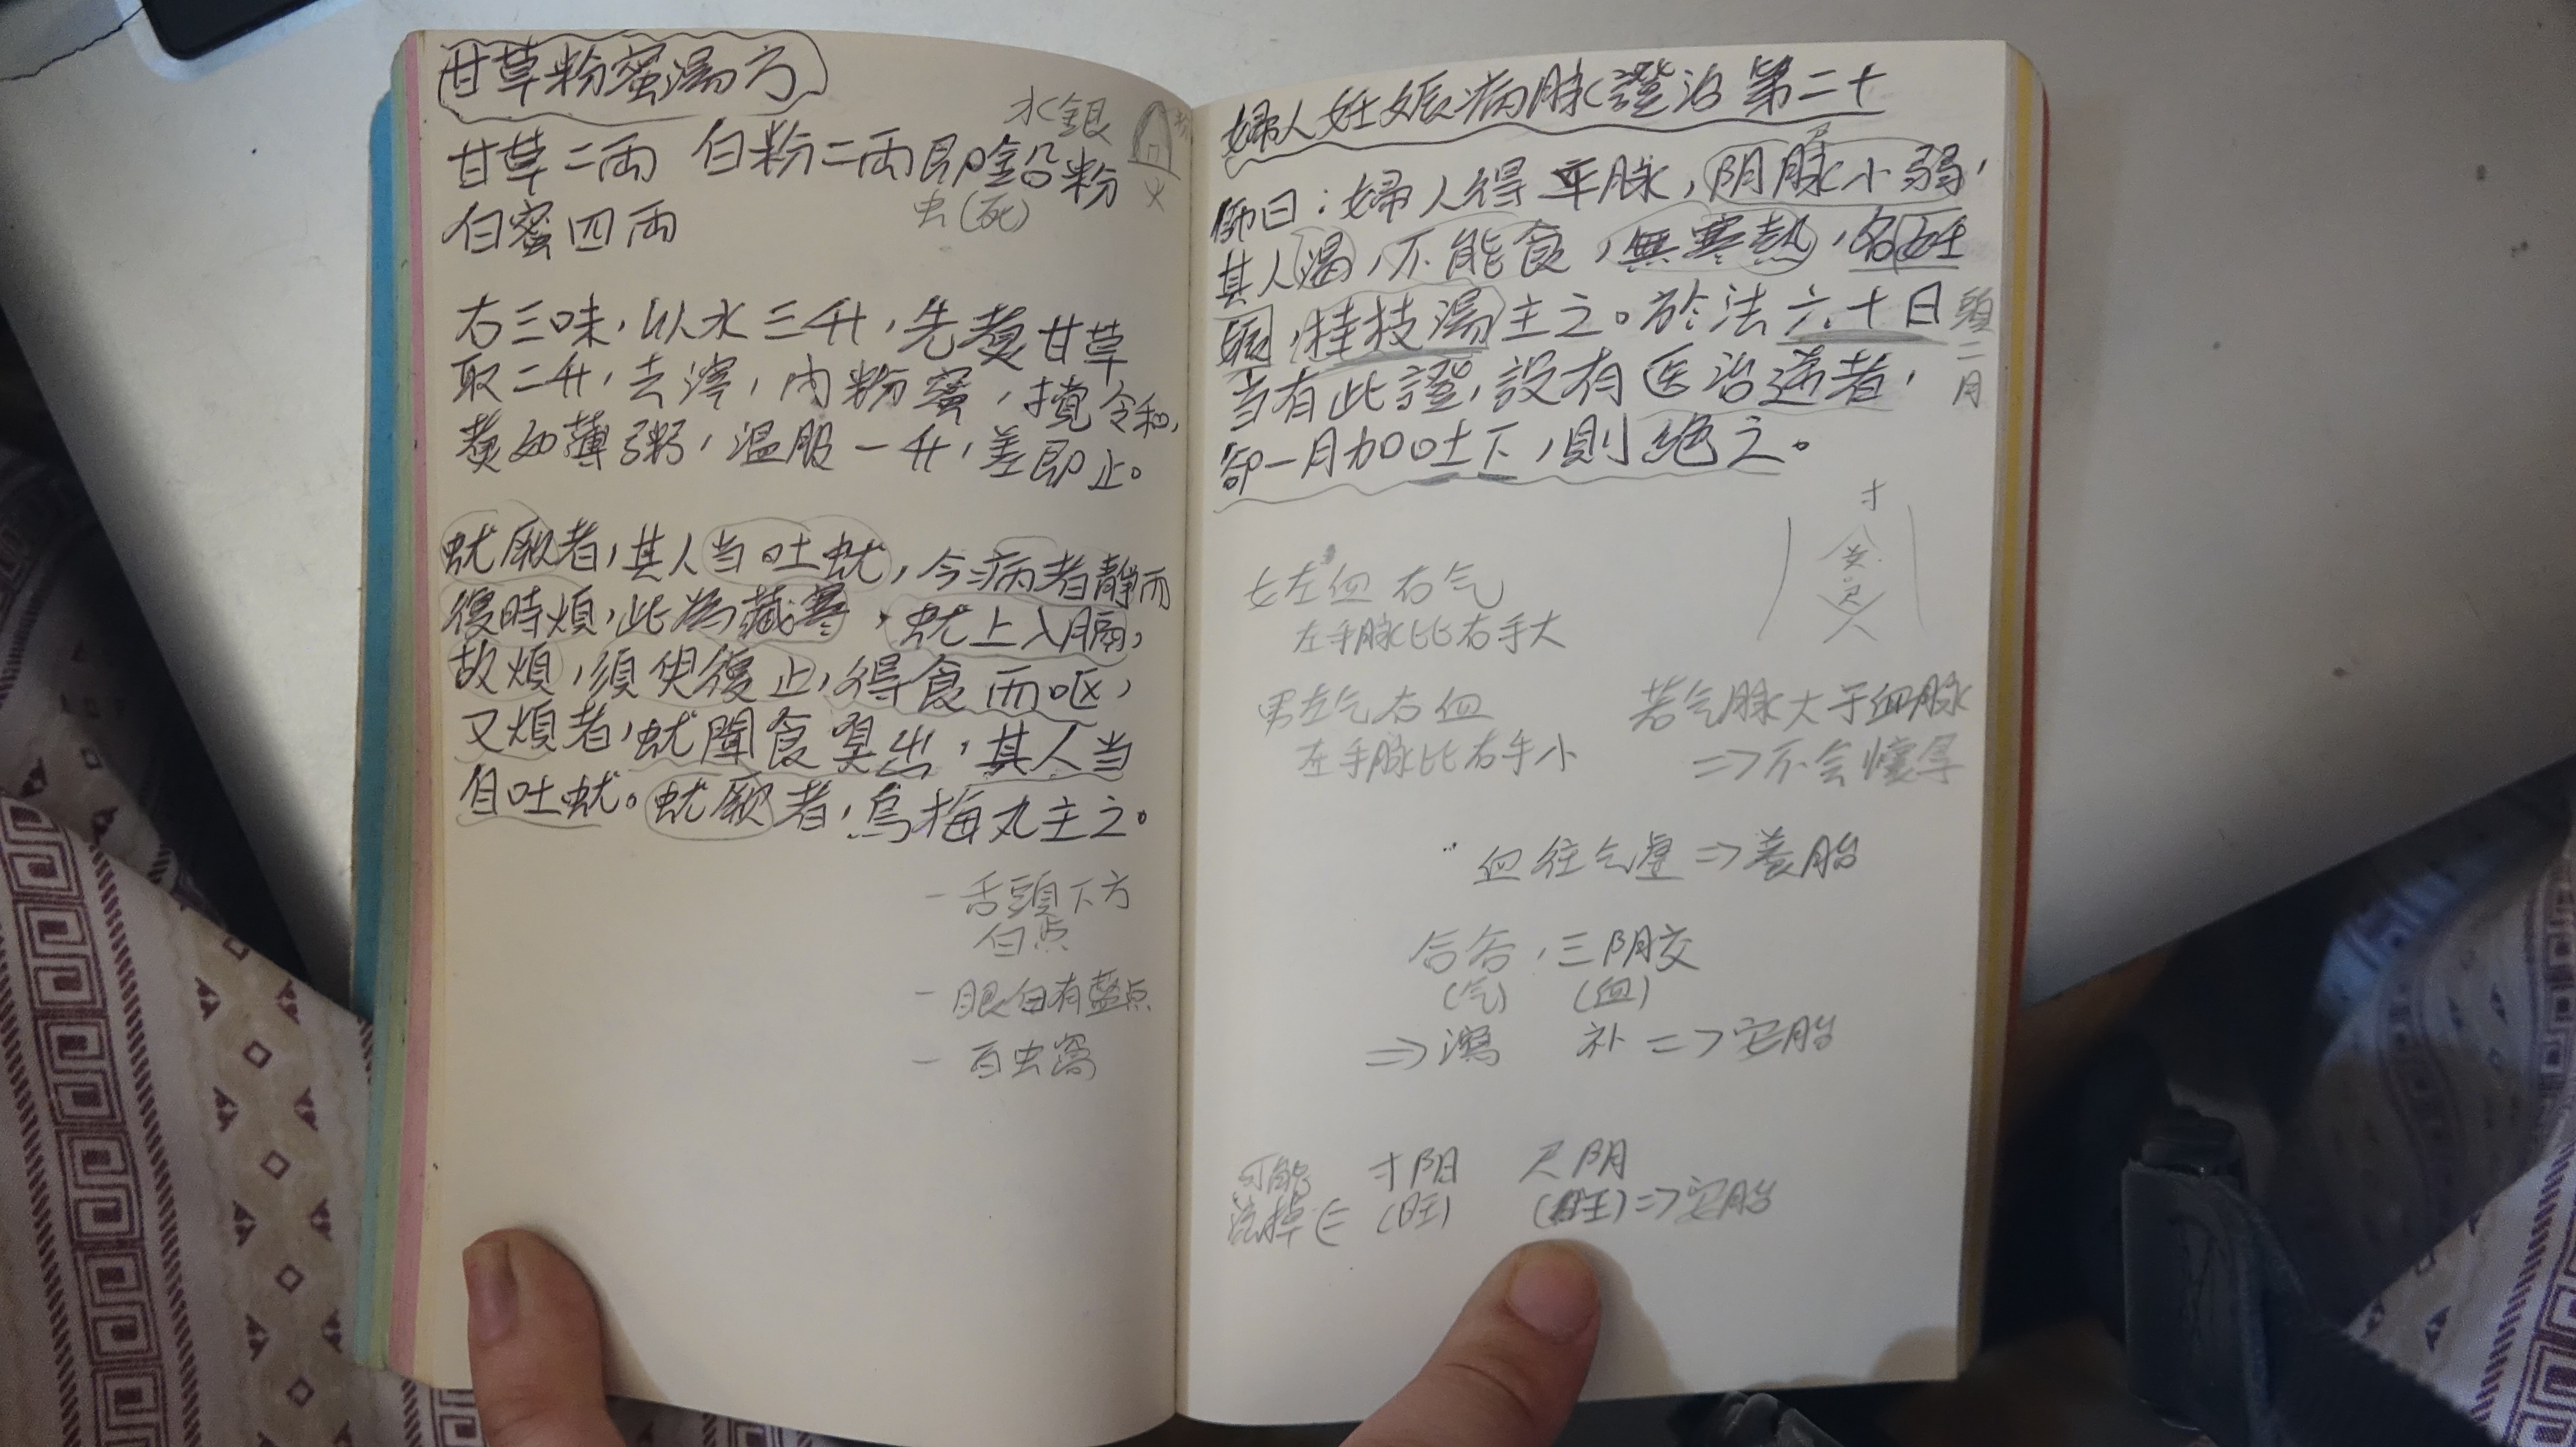 甘草粉蜜湯方
水銀
甘草二两 白粉二两即鉛粉
火
虫(死)
白蜜四两
右三味，以水三升，先煑甘草
取二升，去滓，内粉蜜，攪令和，
煑如薄粥，温服一升，差即止。
蚘厥者，其人当吐蚘，今病者静而
復時煩，此為藏寒，蚘上入膈，
故煩，須臾復止，得食而呕，
又煩者，蚘聞食臭出，其人当
自吐蚘。蚘厥者，烏梅丸主之。
- 舌頭下方
白点
- 眼白有藍点
- 百虫窩
婦人妊娠病脉證治第二十
尺
師曰：婦人得平脉，阴脉小弱，
其人渴，不能食，無寒熱，名妊
娠，桂枝湯主之。於法六十日
頭二月
当有此證，設有医治逆者，
卻一月加吐下，則絶之。
寸
关
尺
女左血 右气
左手脉比右手大
男左气右血
左手脉比右手小
若气脉大于血脉
=> 不会懷孕
血往气虚 => 养胎
合谷，三阴交
(气) (血)
=> 瀉 补 => 安胎
可能 寸阳 尺阴
流掉 <= (旺) (旺) => 安胎